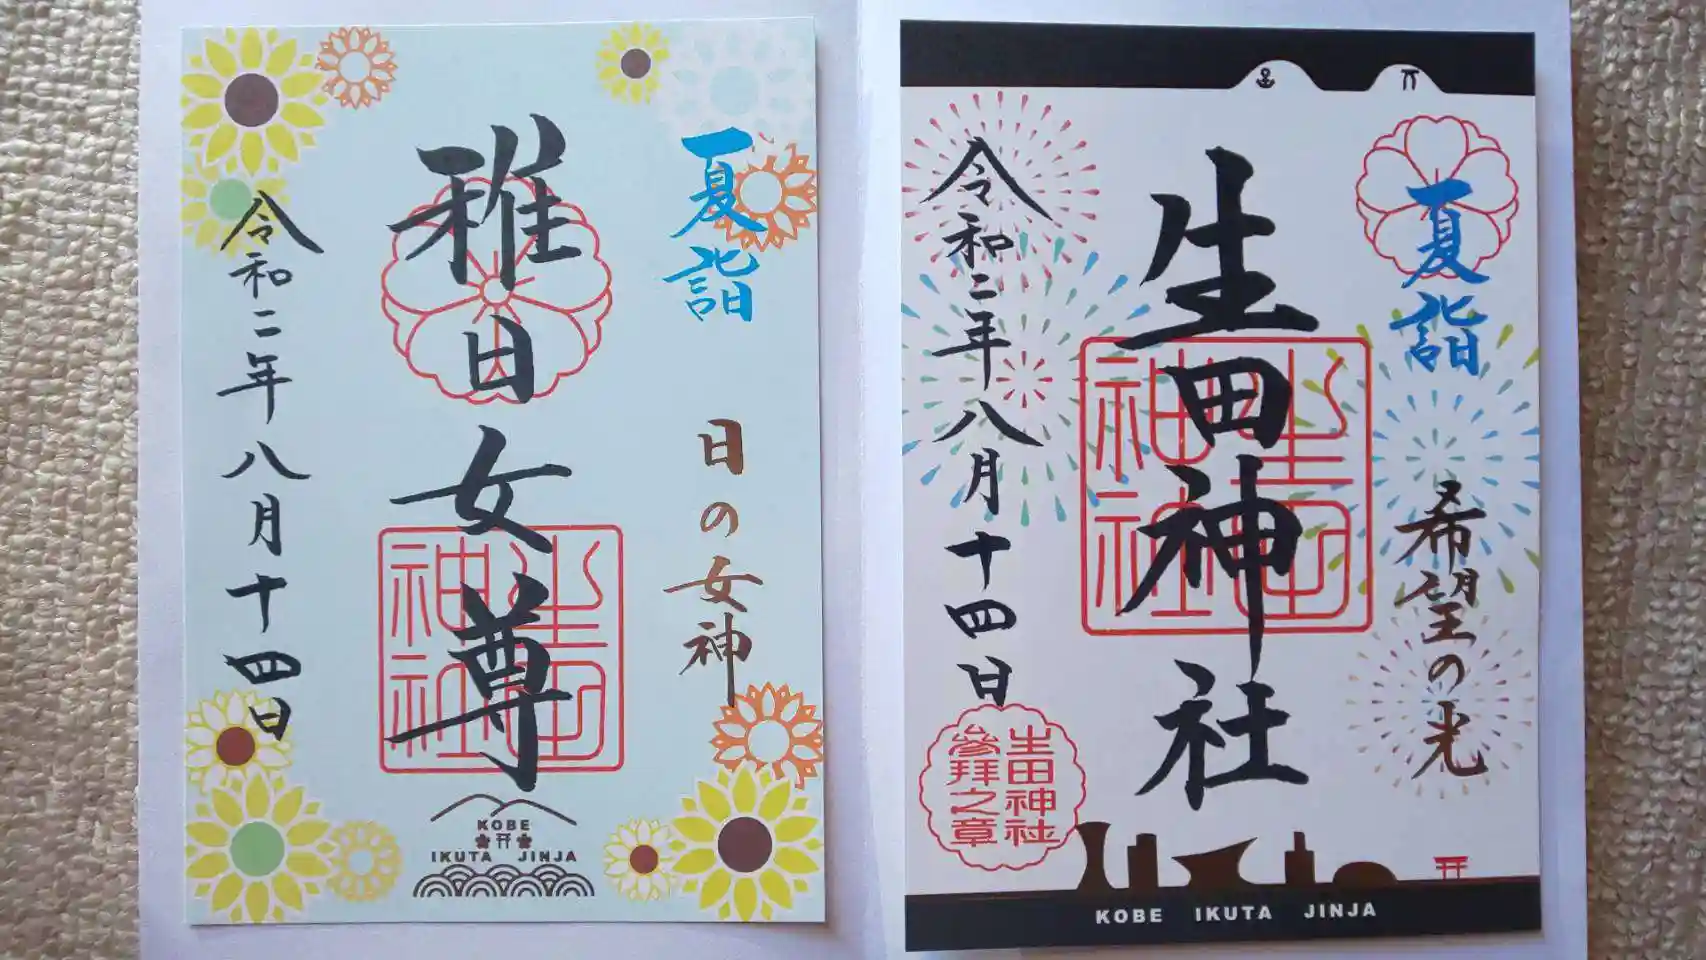 夏詣
日の女神
稚日女尊
令和二年八月十四日
生田神社
KOBE
IKUTA JINJA
夏詣
希望の光
生田神社
令和二年八月十四日
生田神社
生田神社
參拜之章
KOBE IKUTA JINJA